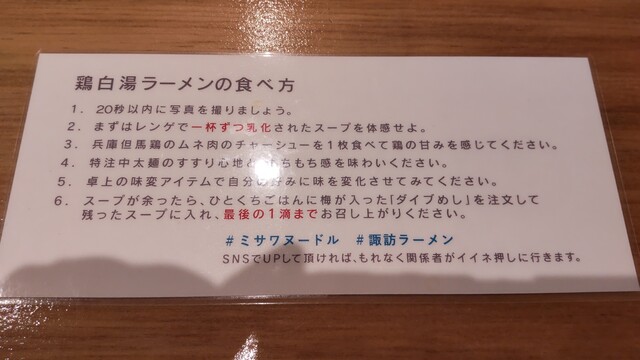 鶏白湯ラーメンの食べ方
1. 20秒以内に写真を撮りましょう。
2. まずはレンゲで一杯ずつ乳化されたスープを体感せよ。
3. 兵庫但馬鶏のムネ肉のチャーシューを1枚食べて鶏の甘みを感じてください。
4. 特注中太麺のすすり心地と、もちもち感を味わいください。
5. 卓上の味変アイテムで自分の好みに味を変化させてみてください。
6. スープが余ったら、ひとくちごはんに梅が入った「ダイブめし」を注文して
残ったスープに入れ、最後の1滴までお召し上がりください。
#ミサワヌードル #諏訪ラーメン
SNSでUPして頂ければ、もれなく関係者がイイネ押しに行きます。